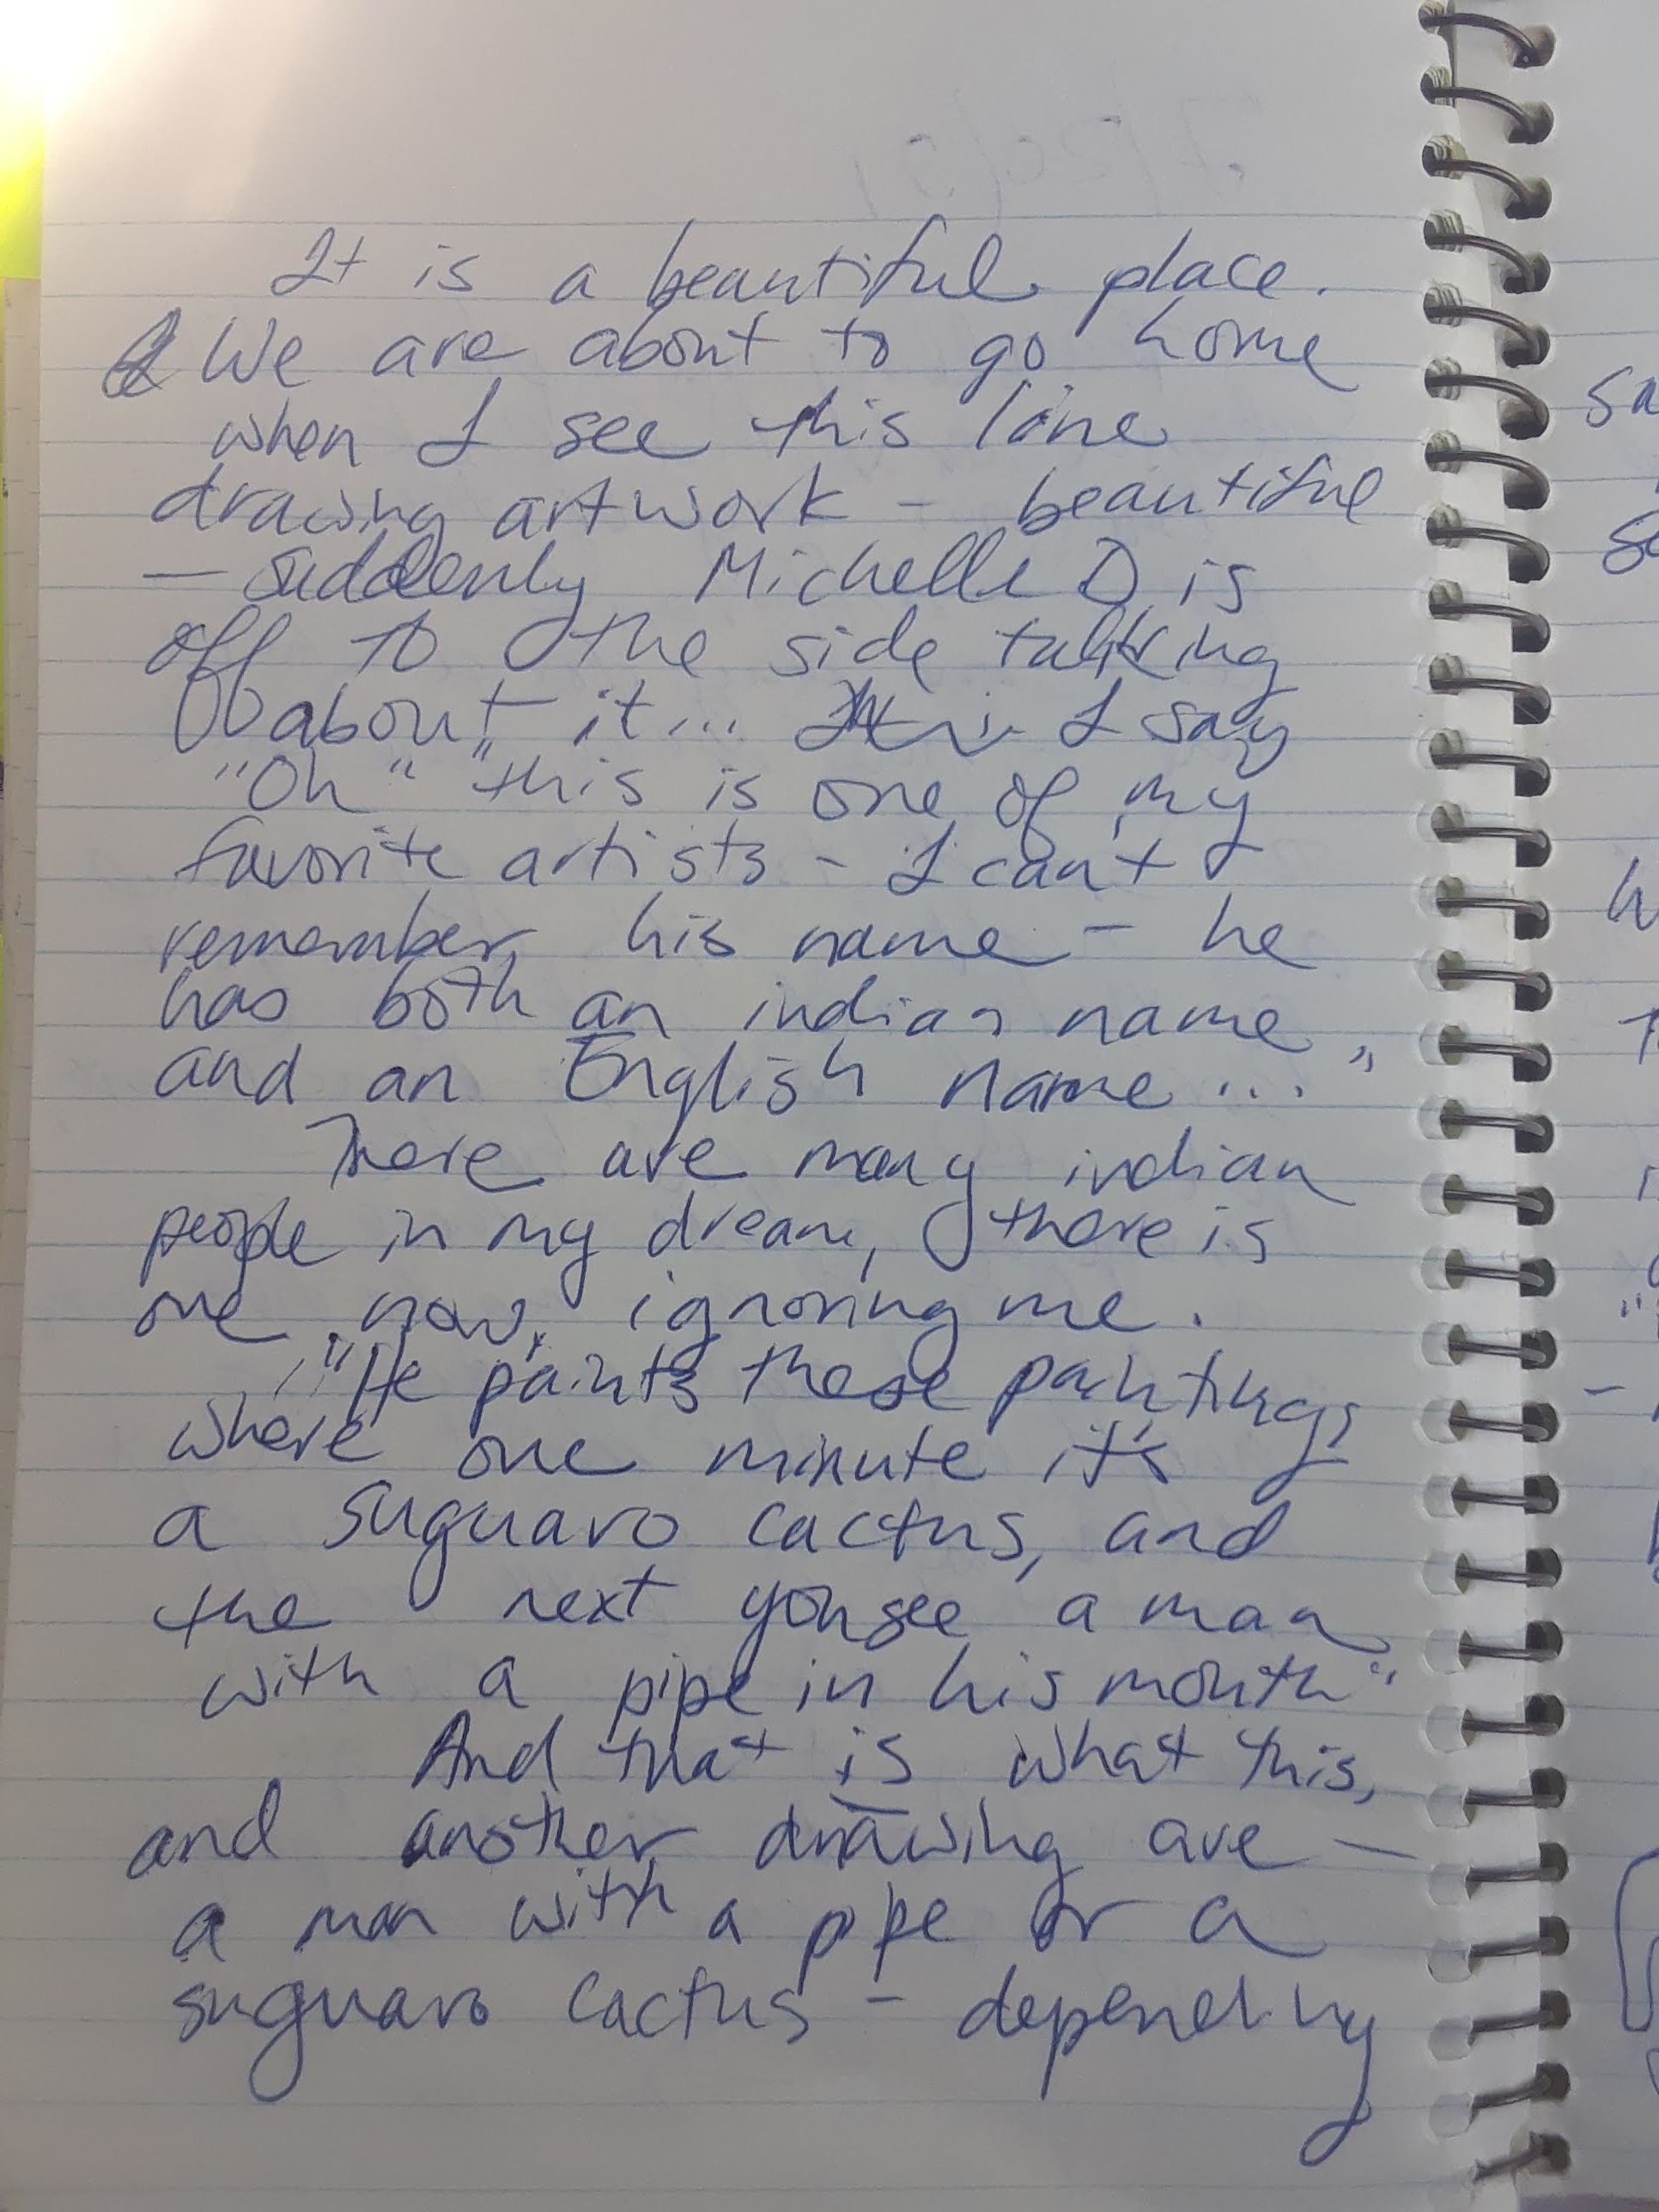 It is a beautiful place.
We are about to go home
when I see this line
drawing artwork - beautiful
- suddenly Michelle D is
off to the side talking
about it... I say
"Oh" "this is one of my
favorite artists - I can't
remember his name - he
has both an indian name
and an English name..."
There are many indian
people in my dream, there is
one now, ignoring me.
"He paints these paintings
where one minute it's
a suguaro cactus, and
the next you see a man
with a pipe in his mouth"
And that is what this,
and another drawing are -
a man with a pipe or a
suguaro cactus - depending